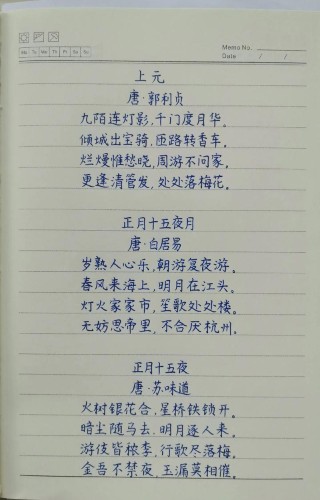 Memo No.
Mo Tu We Th Fr Sa Su
Date / /
上元
唐·郭利贞
九陌连灯影,千门度月华。
倾城出宝骑,匝路转香车。
烂熳惟愁晓,周游不问家。
更逢清管发,处处落梅花。
正月十五夜月
唐·白居易
岁熟人心乐,朝游复夜游。
春风来海上,明月在江头。
灯火家家市,笙歌处处楼。
无妨思帝里,不合厌杭州。
正月十五夜
唐·苏味道
火树银花合,星桥铁锁开。
暗尘随马去,明月逐人来。
游伎皆秾李,行歌尽落梅。
金吾不禁夜,玉漏莫相催。